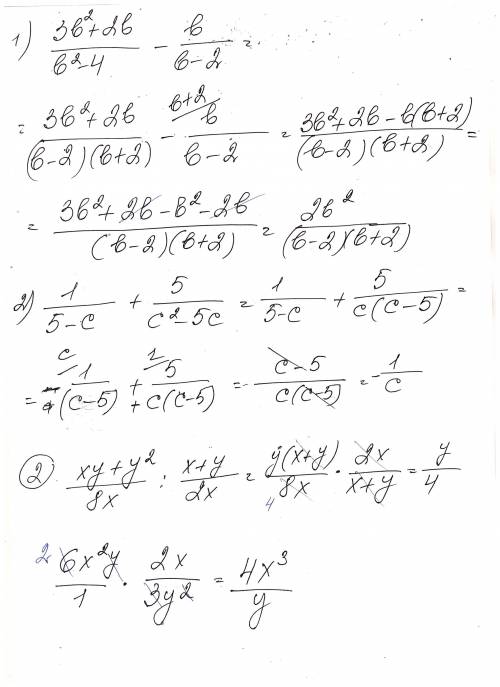 1) (3b²+2b)/(b²-4) - b/(b-2) =
= (3b²+2b)/((b-2)(b+2)) - b+2/ b/(b-2) = (3b²+2b-b(b+2))/((b-2)(b+2)) =
= (3b²+2b-b²-2b)/((b-2)(b+2)) = 2b²/((b-2)(b+2))
2) 1/(5-c) + 5/(c²-5c) = 1/(5-c) + 5/(c(c-5)) =
= c/ 1/(-(c-5)) + 1/ 5/(c(c-5)) = -(c-5)/(c(c-5)) = -1/c
② (xy+y²)/(8x) : (x+y)/(2x) = y(x+y)/(8x) 4 · 2x/(x+y) = y/4
2 6x²y/1 · 2x/(3y²) = 4x³/y